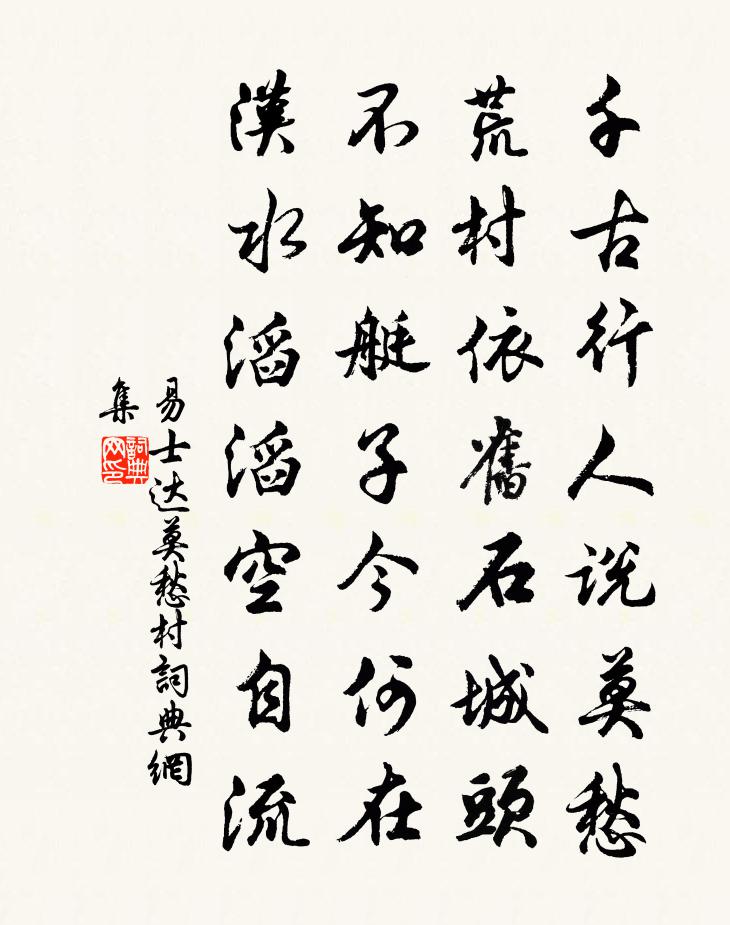 千古行人说莫愁
荒村依舊石城頭
不知艇子今何在
漢水滔滔空自流
易士达莫愁村詞典網
集
詞典
网印